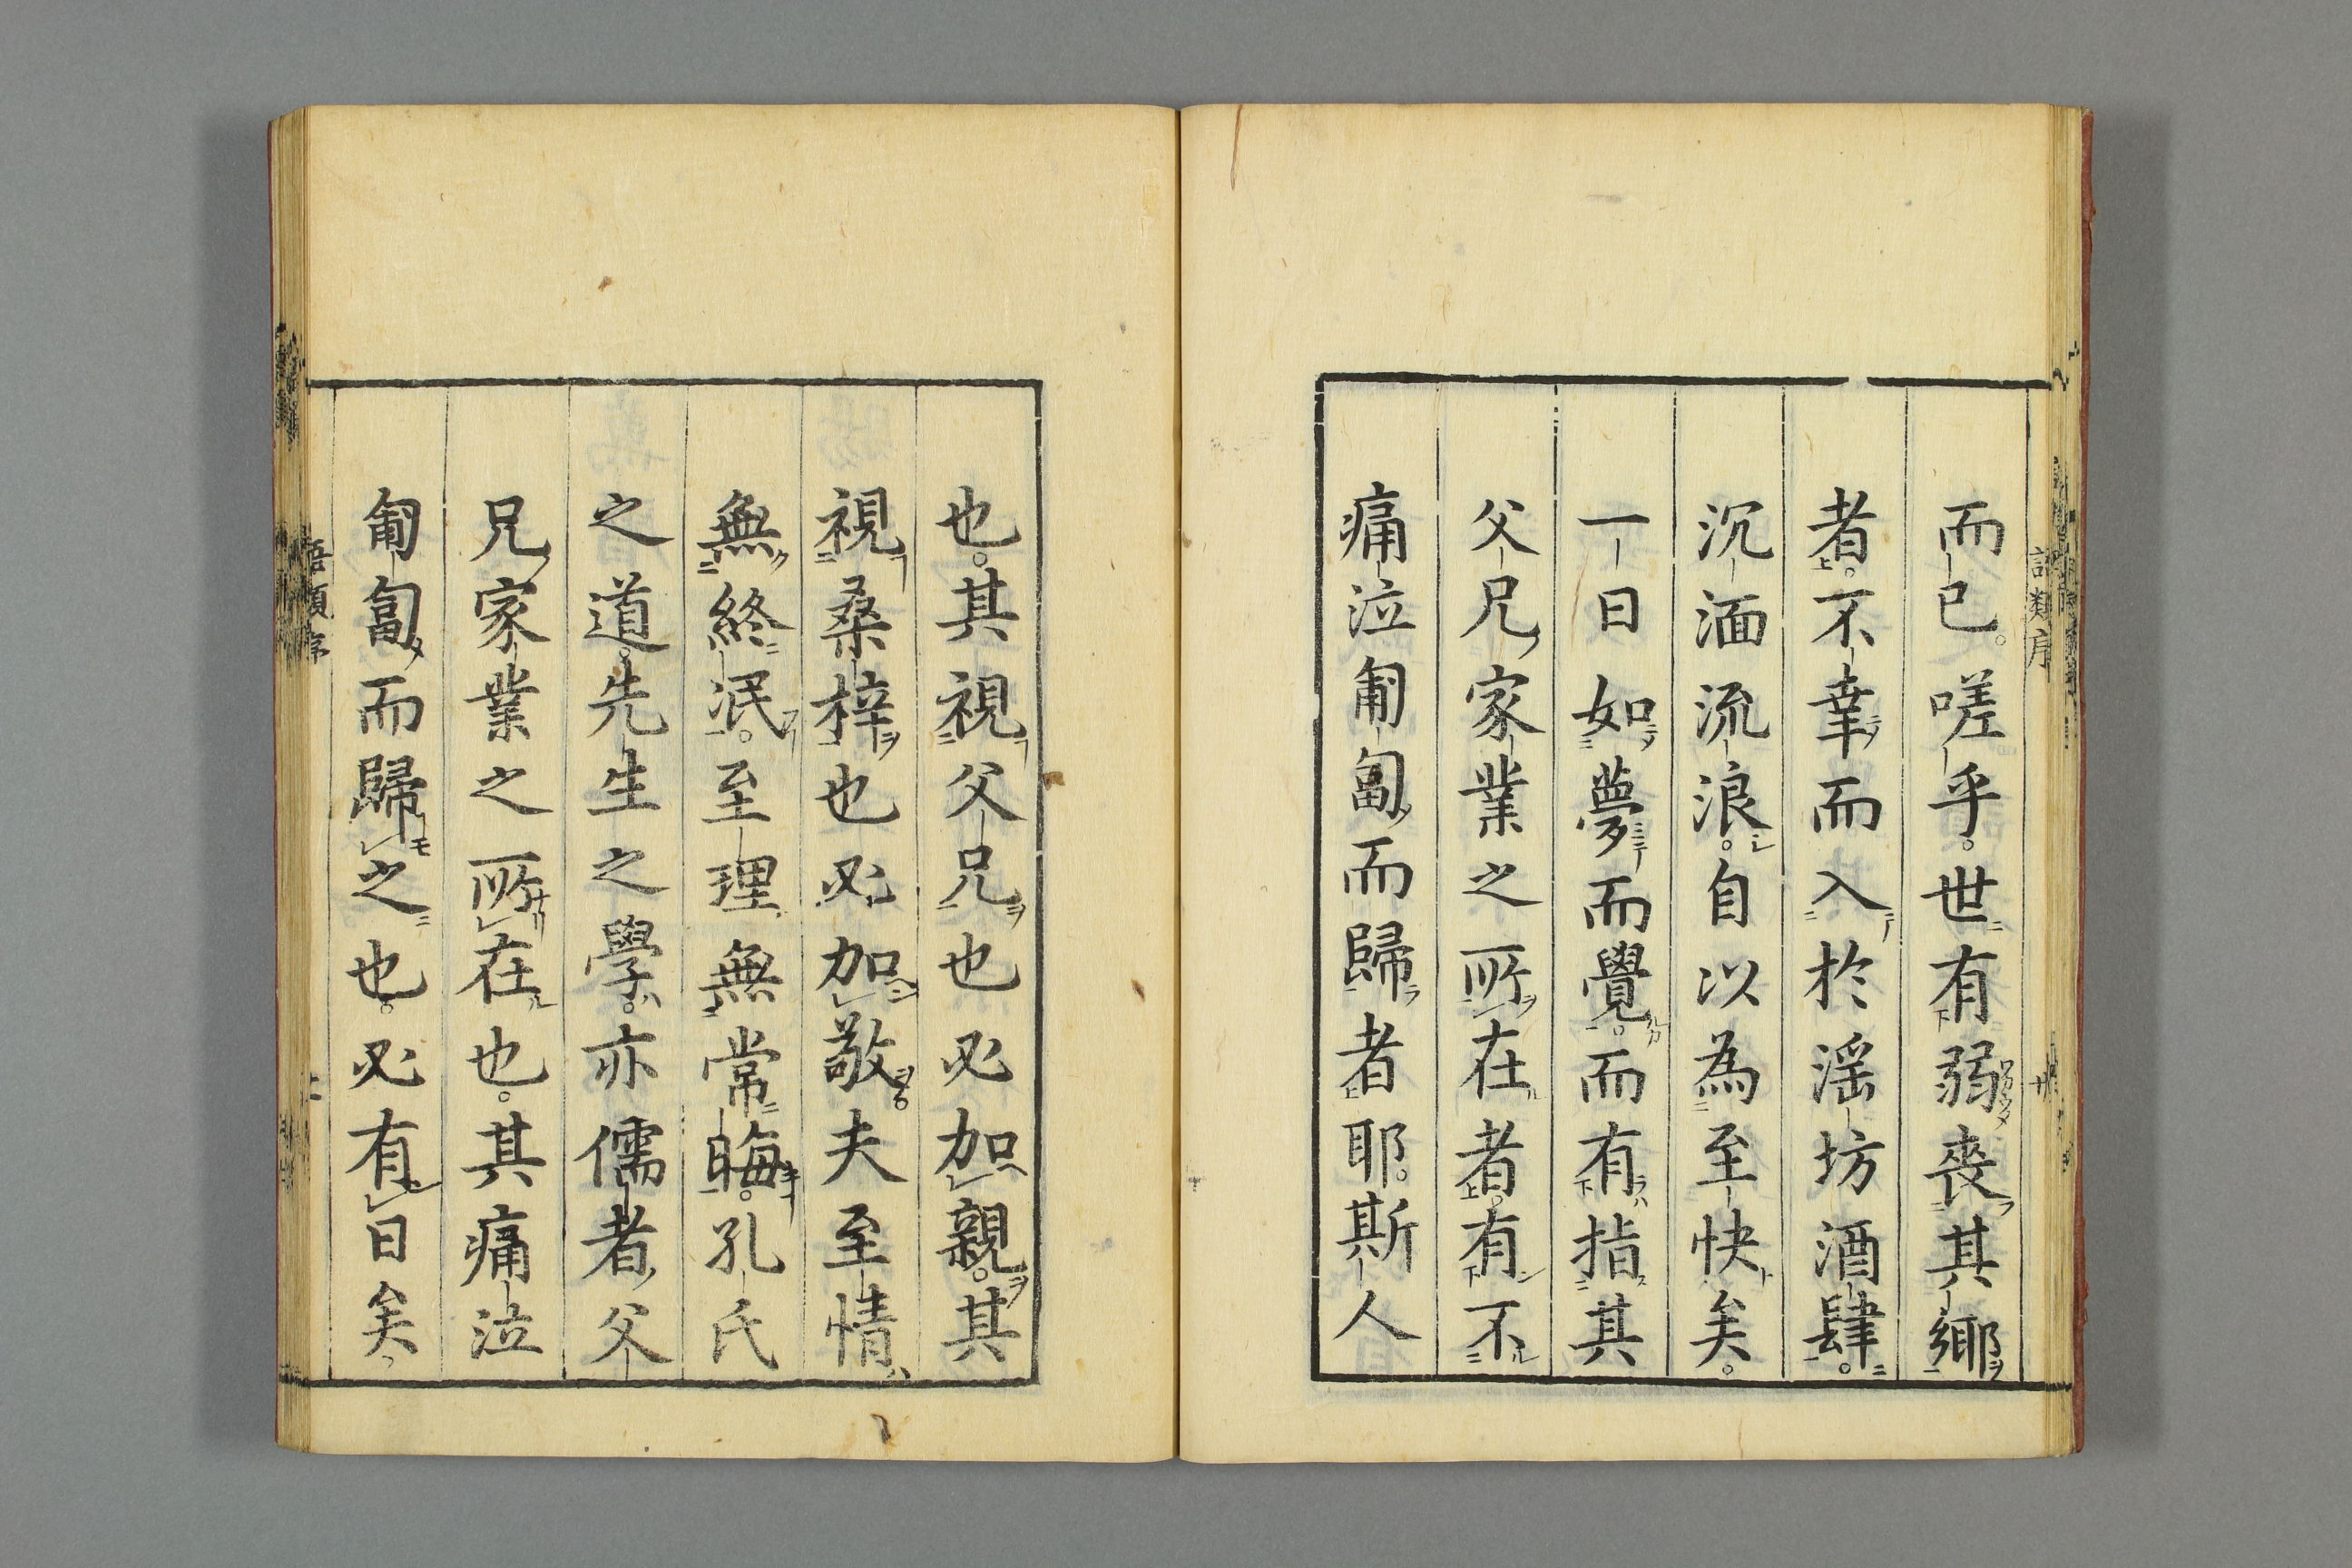 而已。嗟乎。世有弱喪其鄉
者。不幸而入於淫坊酒肆。
沉湎流浪。自以為至快矣。
一日如夢而覺。而有指其
父兄家業之所在者。有不
痛泣匍匐而歸者耶。斯人
也。其視父兄也必加親。其
視桑梓也必加敬。夫至情
無終泯。至理無常晦。孔氏
之道。先生之學。亦儒者父
兄家業之所在也。其痛泣
匍匐而歸之也。必有日矣